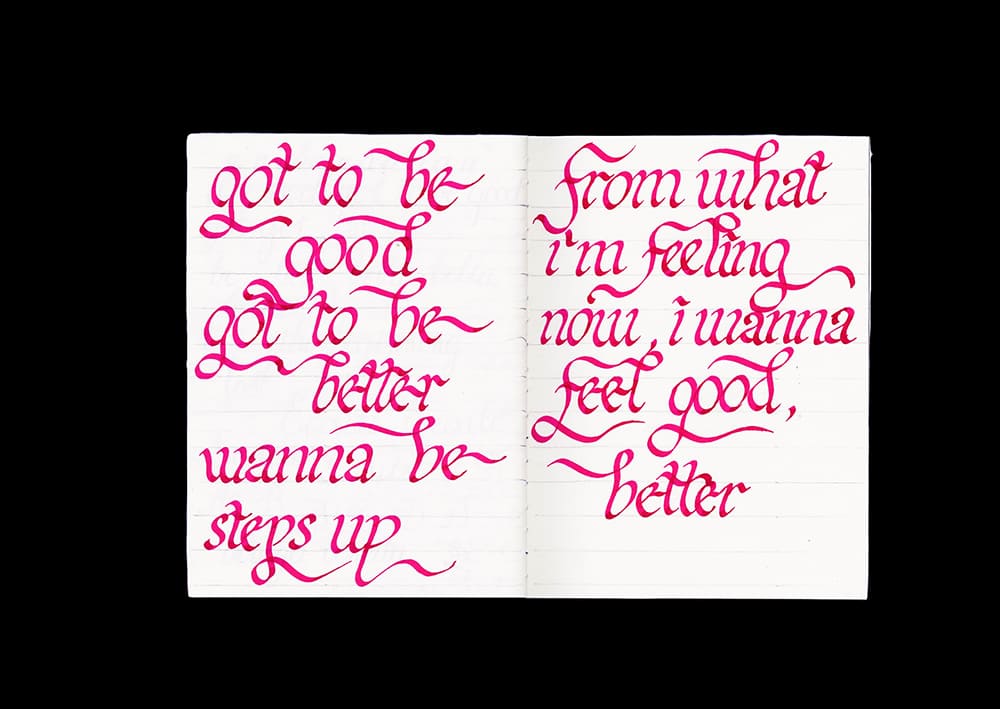 got to be
good
got to be
better
wanna be
steps up
from what
i'm feeling
now, i wanna
feel good,
better